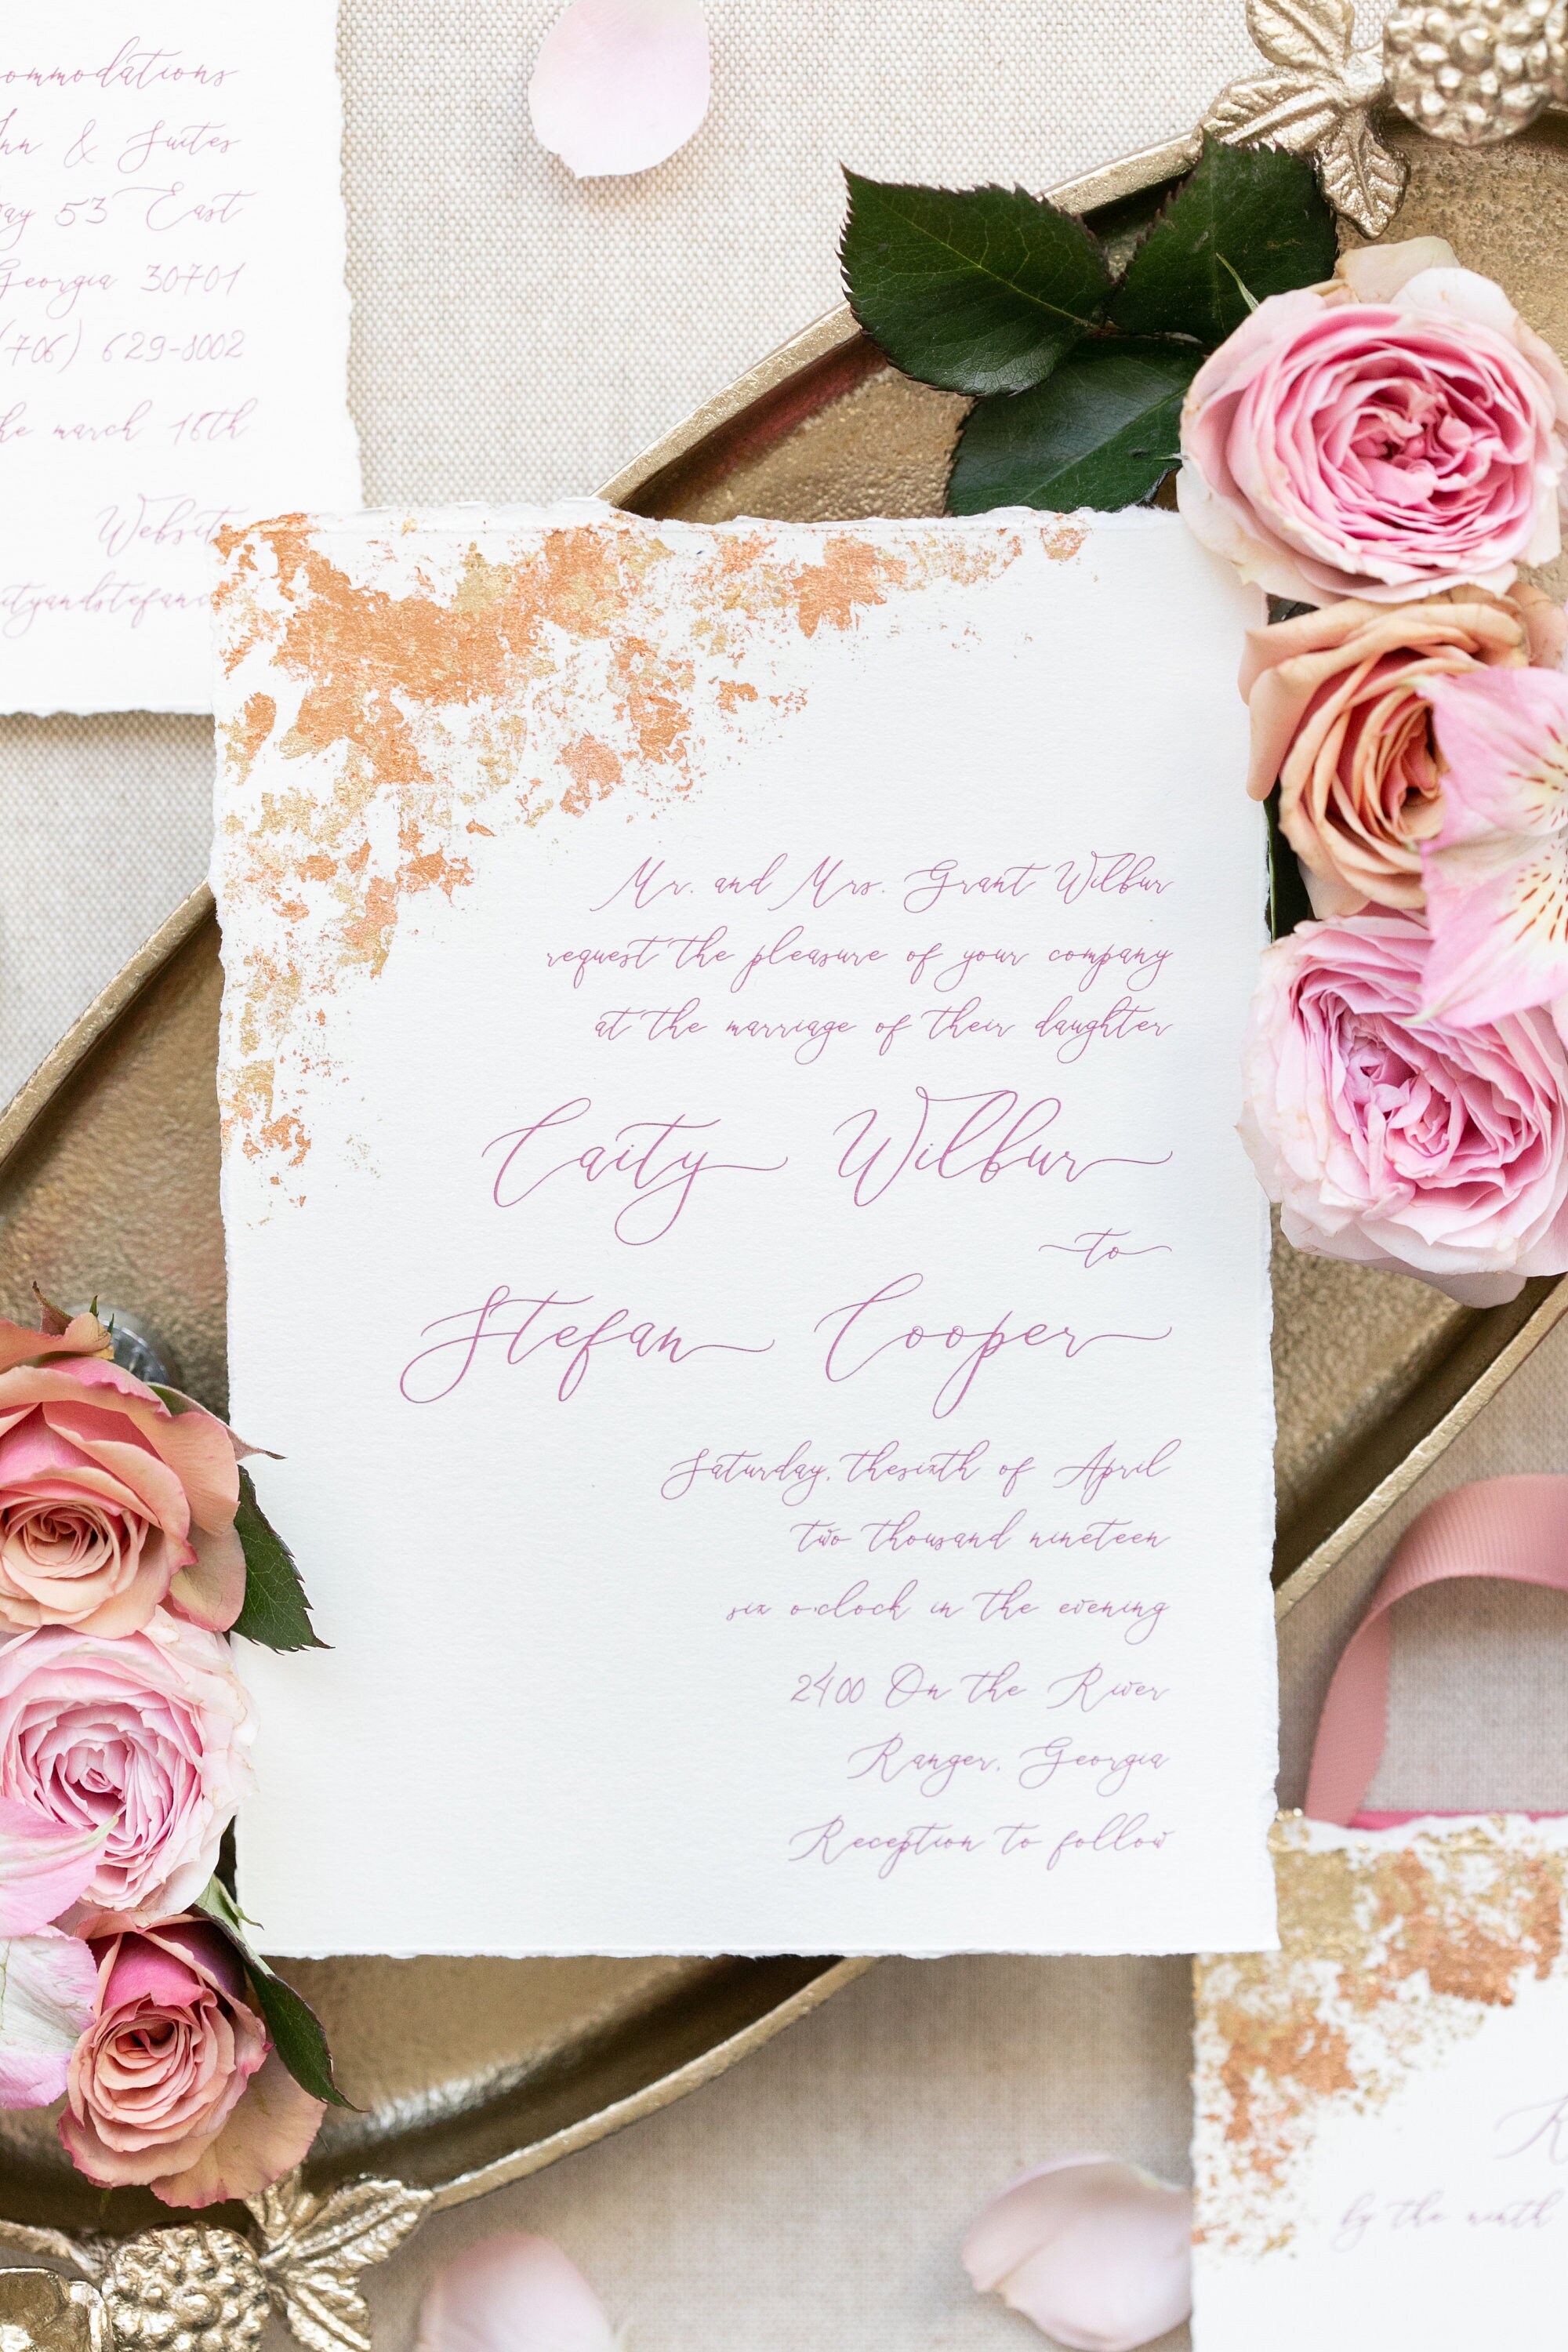 ommodations
Inn & Suites
ay 53 East
Georgia 30701
(706) 629-8002
he march 16th
Websit
ityandstefanc
Mr. and Mrs. Grant Wilbur
request the pleasure of your company
at the marriage of their daughter
Caity Wilbur
to
Stefan Cooper
Saturday, thesixth of April
two thousand nineteen
six o'clock in the evening
2400 On the River
Ranger, Georgia
Reception to follow
by the ninth